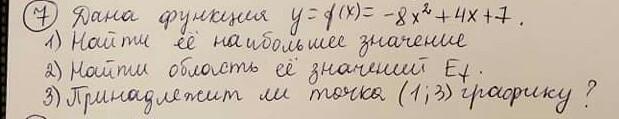 7) Дана функция y=f(x)= -8x²+4x+7.
1) Найти её наибольшее значение
2) Найти область её значений E_f.
3) Принадлежит ли точка (1;3) графику?